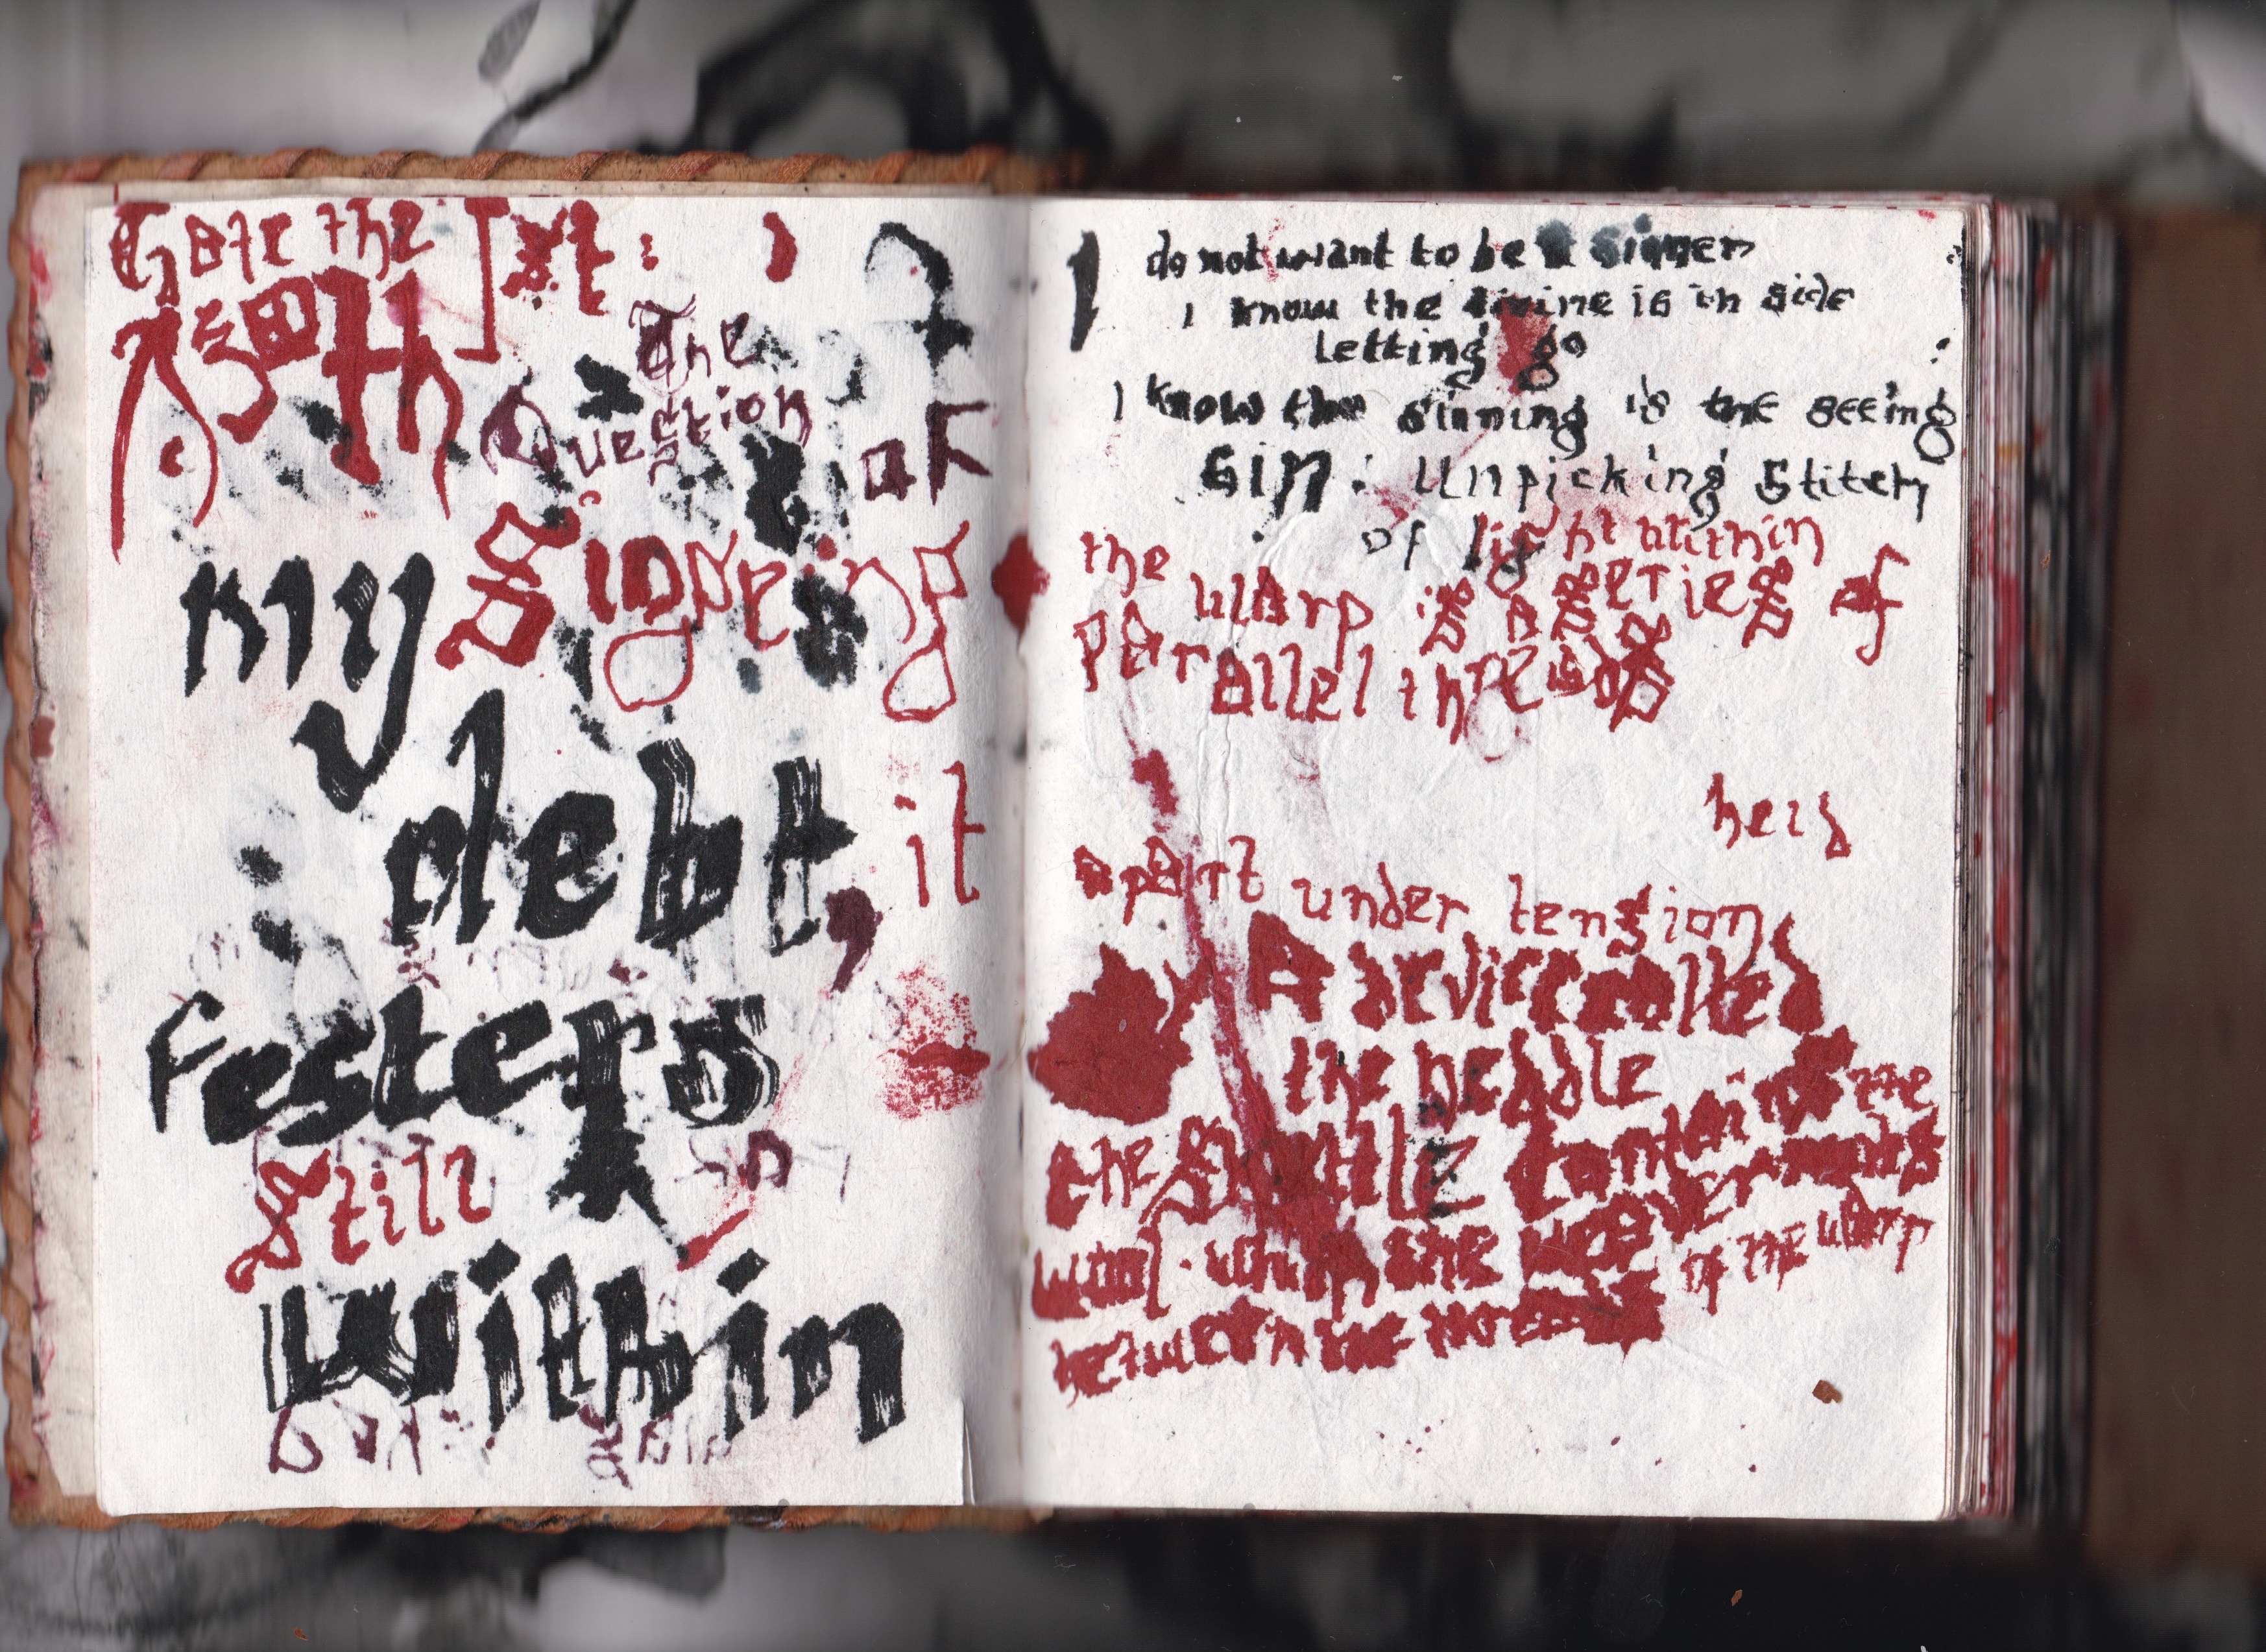 the
The
Question
my
debt, it
festers
still
within
I do not want to be a sinner
I know the divine is in side
letting go
I know the sinning is the seeing
sin : unpicking stitch
of light within
the warp is a series of
parallel threads
held
apart under tension
A device called
the heddle
the shuttle contains the
wool which the weaver
between the in the warp